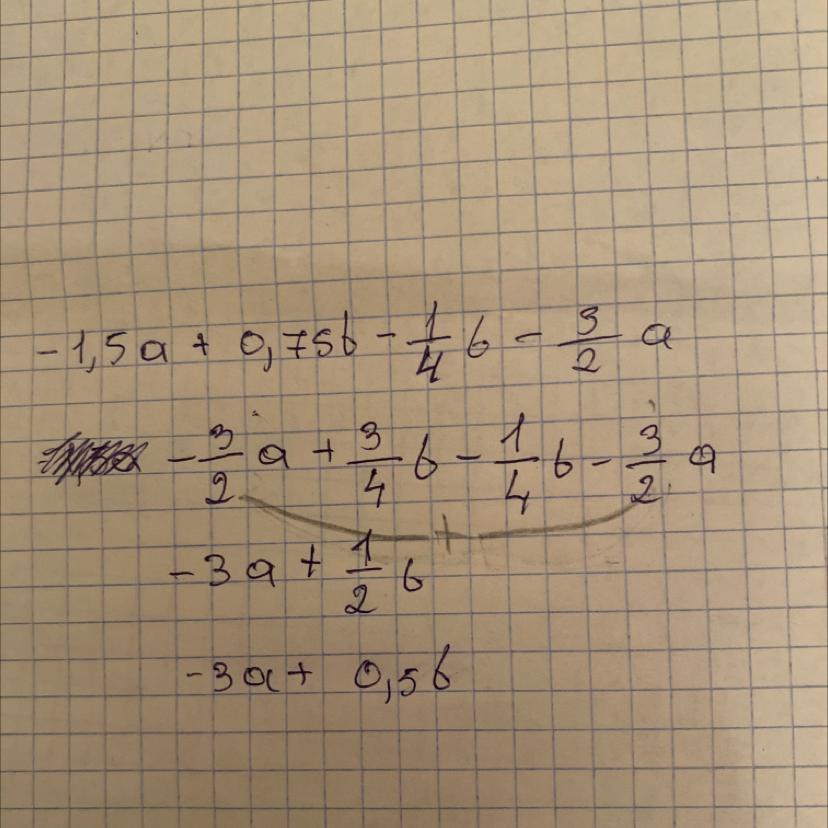 -1,5a + 0,75b - 1/4 b - 3/2 a
- 3/2 a + 3/4 b - 1/4 b - 3/2 a
+
-3a + 1/2 b
-3a + 0,5b